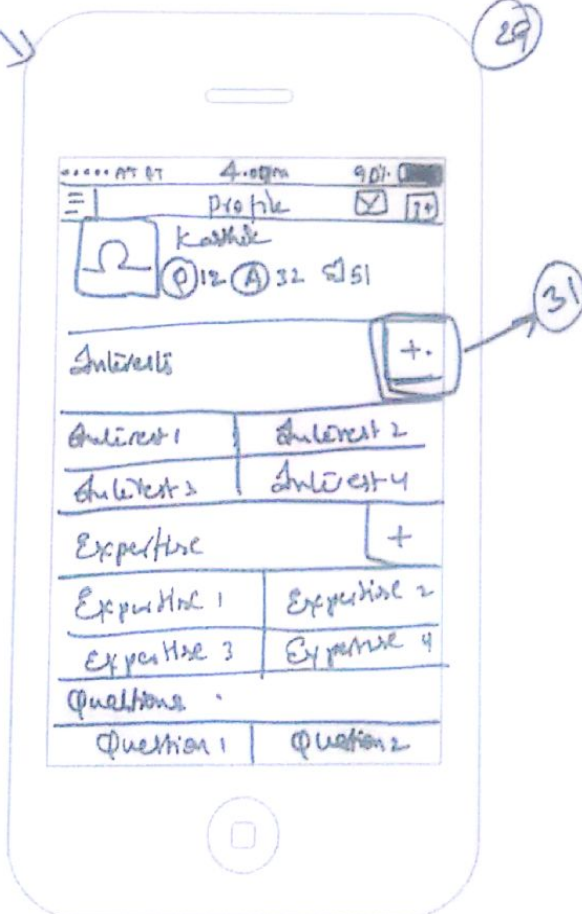 29
AT&T 4.00pm 90%
Profile
Karthik
P 12 A 32 51
Interests +
31
Interest 1 Interest 2
Interest 3 Interest 4
Expertise +
Expertise 1 Expertise 2
Expertise 3 Expertise 4
Questions
Question 1 Question 2